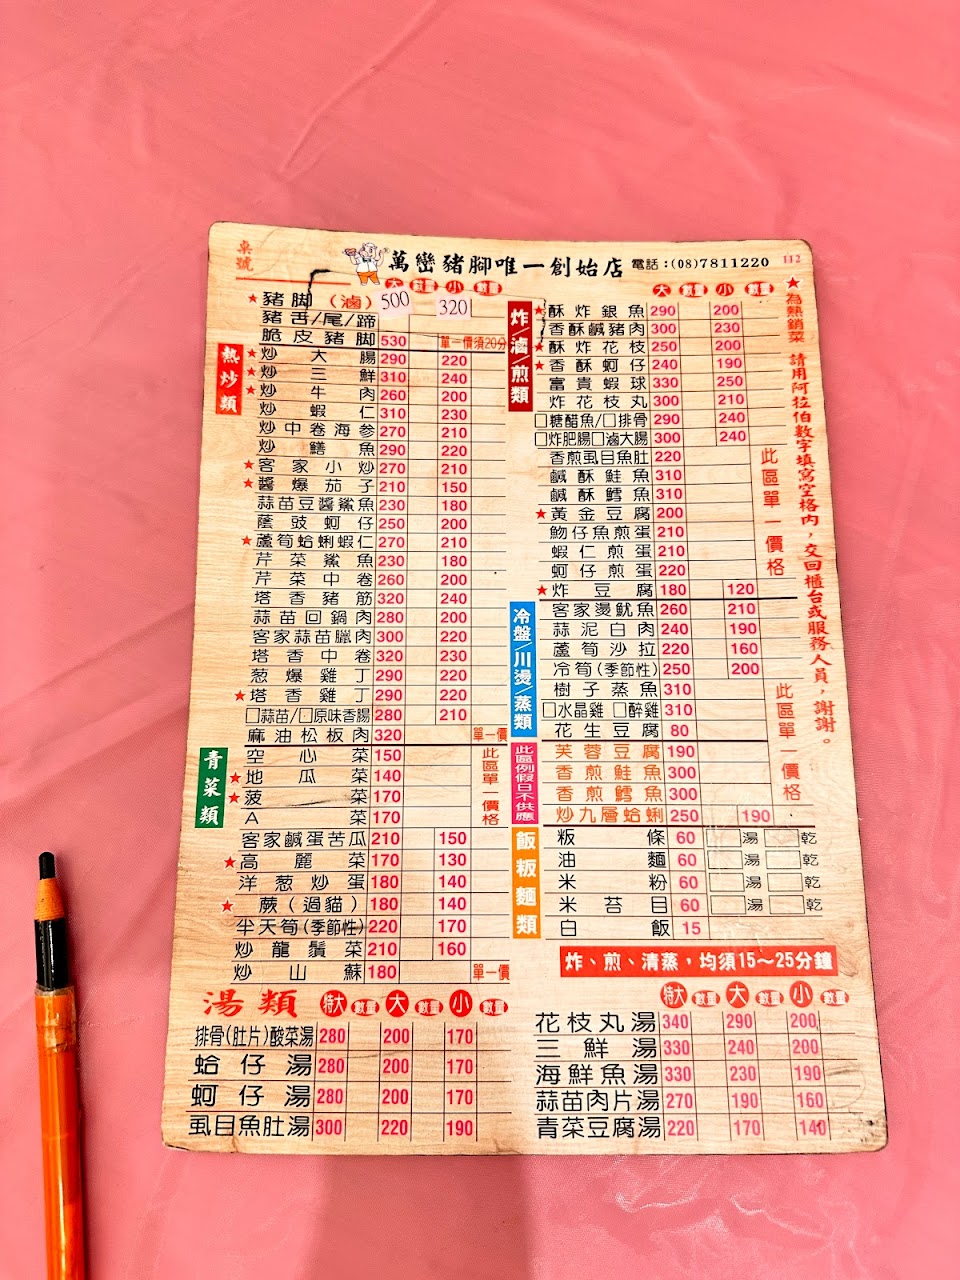 桌號
萬巒豬腳唯一創始店 電話:(08)7811220 112
大 數量 小 數量
★豬腳(滷) 500 320
豬舌/尾/蹄
脆皮豬腳 530 單一價須20分
熱炒類
★炒大腸 290 220
★炒三鮮 310 240
★炒牛肉 260 200
炒蝦仁 310 230
炒中卷海參 270 210
炒鱔魚 290 220
★客家小炒 270 210
★醬爆茄子 210 150
蒜苗豆醬鯊魚 230 180
蔭豉蚵仔 250 200
★蘆筍蛤蜊蝦仁 270 210
芹菜鯊魚 230 180
芹菜中卷 260 200
塔香豬筋 320 240
蒜苗回鍋肉 280 200
客家蒜苗臘肉 300 220
塔香中卷 320 230
葱爆雞丁 290 220
★塔香雞丁 290 220
□蒜苗/□原味香腸 280 210
麻油松板肉 320 單一價
青菜類
空心菜 150
★地瓜菜 140
★菠菜 170
A菜 170
此區單一價格
客家鹹蛋苦瓜 210 150
★高麗菜 170 130
洋葱炒蛋 180 140
★蕨(過貓) 180 140
半天筍(季節性) 220 170
炒龍鬚菜 210 160
炒山蘇 180 單一價
大 數量 小 數量
炸/滷/煎類
★酥炸銀魚 290 200
香酥鹹豬肉 300 230
★酥炸花枝 250 200
★香酥蚵仔 240 190
富貴蝦球 330 250
炸花枝丸 300 210
□糖醋魚/□排骨 290 240
□炸肥腸□滷大腸 300 240
香煎虱目魚肚 220
鹹酥鮭魚 310
鹹酥鱈魚 310
★黃金豆腐 200
魩仔魚煎蛋 210
蝦仁煎蛋 210
蚵仔煎蛋 220
此區單一價格
★炸豆腐 180 120
冷盤/川燙/蒸類
客家燙魷魚 260 210
蒜泥白肉 240 190
蘆筍沙拉 220 160
冷筍(季節性) 250 200
樹子蒸魚 310
□水晶雞 □醉雞 310
花生豆腐 80
此區例假日不供應
芙蓉豆腐 190
香煎鮭魚 300
香煎鱈魚 300
此區單一價格
炒九層蛤蜊 250 190
飯粄麵類
粄條 60 □湯 □乾
油麵 60 □湯 □乾
米粉 60 □湯 □乾
米苔目 60 □湯 □乾
白飯 15
炸、煎、清蒸，均須15～25分鐘
★為熱銷菜 請用阿拉伯數字填寫空格內，交回櫃台或服務人員，謝謝。
湯類 特大 數量 大 數量 小 數量
排骨(肚片)酸菜湯 280 200 170
蛤仔湯 280 200 170
蚵仔湯 280 200 170
虱目魚肚湯 300 220 190
特大 數量 大 數量 小 數量
花枝丸湯 340 290 200
三鮮湯 330 240 200
海鮮魚湯 330 230 190
蒜苗肉片湯 270 190 160
青菜豆腐湯 220 170 140